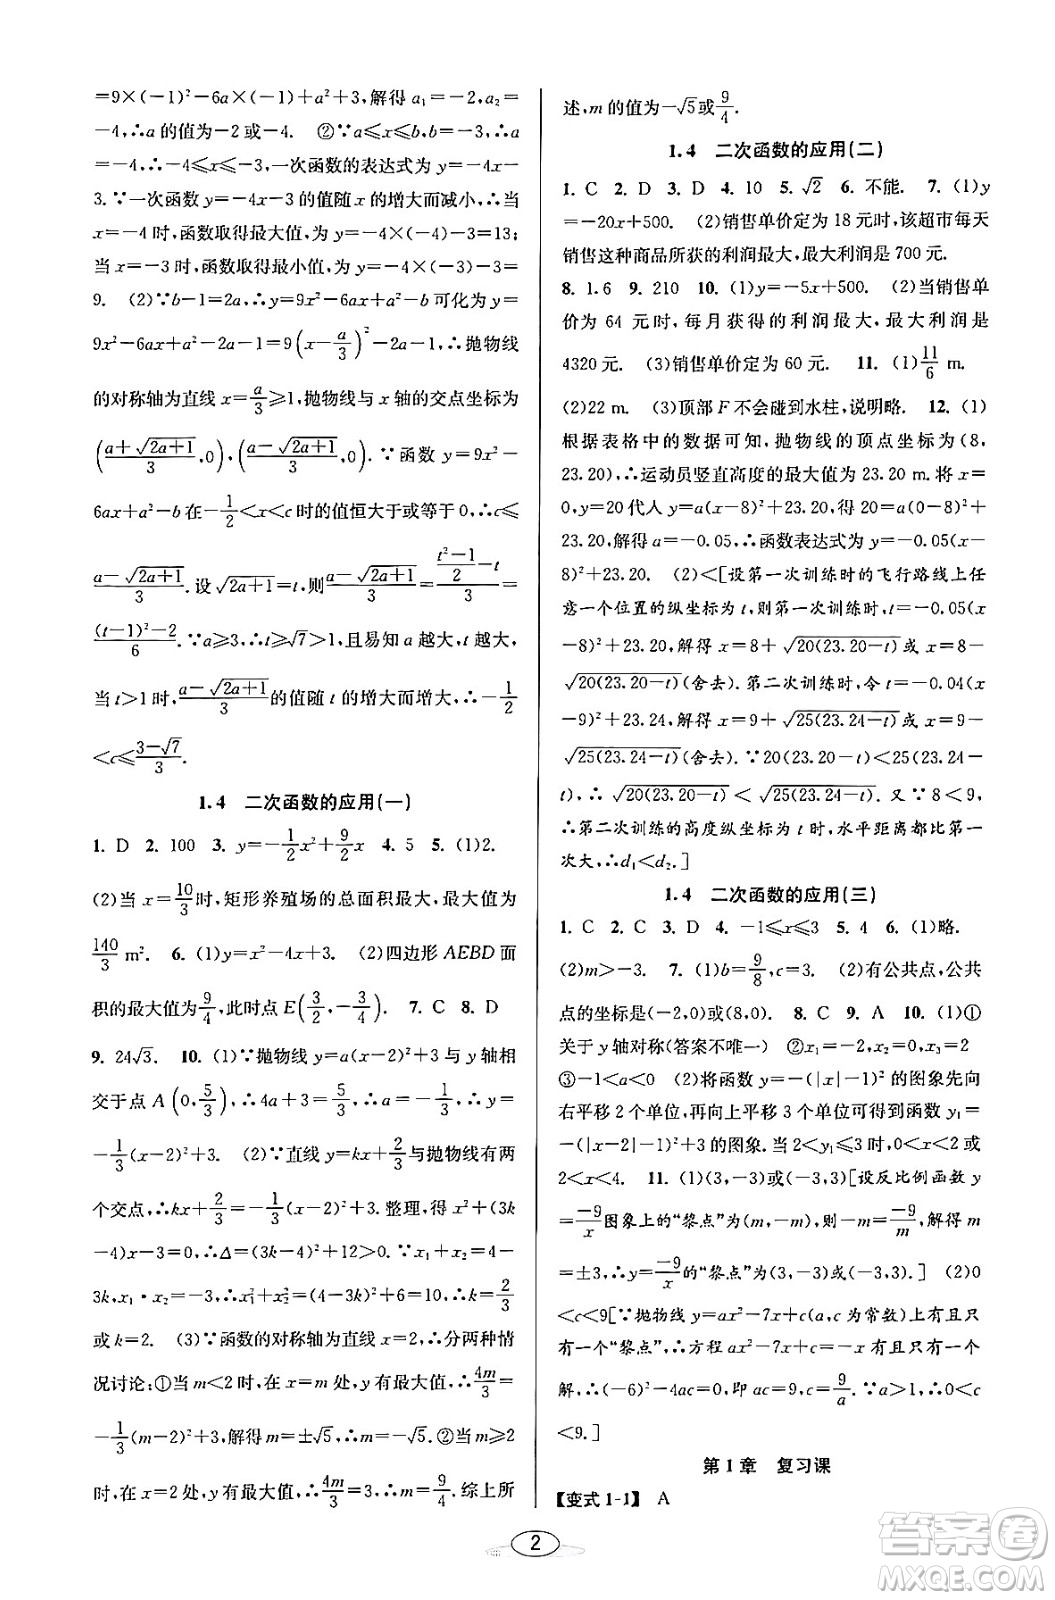 =9×(−1)²−6a×(−1)+a²+3,解得 a₁=−2,a₂=
−4,∴a 的值为−2 或−4. ②∵a⩽x⩽b,b=−3,∴a
=−4,∴−4⩽x⩽−3,一次函数的表达式为 y=−4x−
3.∵一次函数 y=−4x−3 的值随 x 的增大而减小,∴当 x
=−4 时,函数取得最大值,为 y=−4×(−4)−3=13;
当 x=−3 时,函数取得最小值,为 y=−4×(−3)−3=
9. (2)∵b−1=2a,∴y=9x²−6ax+a²−b 可化为 y=
9x²−6ax+a²−2a−1=9(x−a/3)²−2a−1,∴抛物线
的对称轴为直线 x=a/3⩾1,抛物线与 x 轴的交点坐标为
((a+√(2a+1))/3,0),((a−√(2a+1))/3,0).∵函数 y=9x²−
6ax+a²−b 在−1/2<x<c 时的值恒大于或等于 0,∴c⩽
(a−√(2a+1))/3.设√(2a+1)=t,则(a−√(2a+1))/3=((t²−1)/2−t)/3=
((t−1)²−2)/6.∵a⩾3,∴t⩾√7>1,且易知 a 越大,t 越大,
当 t>1 时,(a−√(2a+1))/3的值随 t 的增大而增大,∴−1/2
<c⩽(3−√7)/3.
1.4 二次函数的应用(一)
1. D 2. 100 3. y=−1/2x²+9/2x 4. 5 5. (1)2.
(2)当 x=10/3时,矩形养殖场的总面积最大,最大值为
140/3 m². 6. (1)y=x²−4x+3. (2)四边形 AEBD 面
积的最大值为9/4,此时点 E(3/2,−3/4). 7. C 8. D
9. 24√3. 10. (1)∵抛物线 y=a(x−2)²+3 与 y 轴相
交于点 A(0,5/3),∴4a+3=5/3,∴a=−1/3,∴y=
−1/3(x−2)²+3. (2)∵直线 y=kx+2/3与抛物线有两
个交点,∴kx+2/3=−1/3(x−2)²+3,整理,得 x²+(3k
−4)x−3=0,∴Δ=(3k−4)²+12>0.∵x₁+x₂=4−
3k,x₁·x₂=−3,∴x₁²+x₂²=(4−3k)²+6=10,∴k=2/3
或 k=2. (3)∵函数的对称轴为直线 x=2,∴分两种情
况讨论:①当 m<2 时,在 x=m 处,y 有最大值,∴4m/3=
−1/3(m−2)²+3,解得 m=±√5,∴m=−√5.②当 m⩾2
时,在 x=2 处,y 有最大值,∴4m/3=3,∴m=9/4.综上所
述,m 的值为−√5或9/4.
1.4 二次函数的应用(二)
1. C 2. D 3. D 4. 10 5. √2 6. 不能. 7. (1)y
=−20x+500. (2)销售单价定为 18 元时,该超市每天
销售这种商品所获的利润最大,最大利润是 700 元.
8. 1.6 9. 210 10. (1)y=−5x+500. (2)当销售单
价为 64 元时,每月获得的利润最大,最大利润是
4320 元. (3)销售单价定为 60 元. 11. (1)11/6 m.
(2)22 m. (3)顶部 F 不会碰到水柱,说明略. 12. (1)
根据表格中的数据可知,抛物线的顶点坐标为(8,
23.20),∴运动员竖直高度的最大值为 23.20 m.将 x=
0,y=20 代人 y=a(x−8)²+23.20,得 20=a(0−8)²+
23.20,解得 a=−0.05,∴函数表达式为 y=−0.05(x−
8)²+23.20. (2)<[设第一次训练时的飞行路线上任
意一个位置的纵坐标为 t,则第一次训练时,t=−0.05(x
−8)²+23.20,解得 x=8+√(20(23.20−t))或 x=8−
√(20(23.20−t))(舍去).第二次训练时,令 t=−0.04(x−
9)²+23.24,解得 x=9+√(25(23.24−t))或 x=9−
√(25(23.24−t))(舍去).∵20(23.20−t)<25(23.24−
t),∴√(20(23.20−t))<√(25(23.24−t)).又∵8<9,
∴第二次训练的高度纵坐标为 t 时,水平距离都比第一
次大,∴d₁<d₂.]
1.4 二次函数的应用(三)
1. C 2. C 3. D 4. −1⩽x⩽3 5. 4 6. (1)略.
(2)m>−3. 7. (1)b=9/8,c=3. (2)有公共点,公共
点的坐标是(−2,0)或(8,0). 8. C 9. A 10. (1)①
关于 y 轴对称(答案不唯一) ②x₁=−2,x₂=0,x₃=2
③−1<a<0 (2)将函数 y=−(|x|−1)²的图象先向
右平移 2 个单位,再向上平移 3 个单位可得到函数 y₁=
−(|x−2|−1)²+3 的图象.当 2<y₁⩽3 时,0<x<2 或
2<x<4. 11. (1)(3,−3)或(−3,3)[设反比例函数 y=
−9/x图象上的“黎点”为(m,−m),则−m=−9/m,解得 m
=±3,∴y=−9/x的“黎点”为(3,−3)或(−3,3).] (2)0
<c<9[∵抛物线 y=ax²−7x+c(a,c 为常数)上有且只
有一个“黎点”,∴方程 ax²−7x+c=−x 有且只有一个
解,∴(−6)²−4ac=0,即 ac=9,c=9/a.∵a>1,∴0<c
<9.]
第 1 章 复习课
【变式 1-1】 A
2
答案圈
MXQE.COM